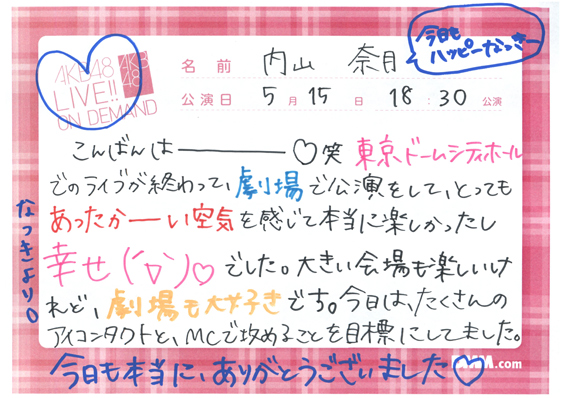 今日も
ハッピーなっきー
AKB48
LIVE!!
ON DEMAND
AKB
48
名前 内山 奈月
公演日 5月15日 18:30 公演
こんばんはー♡笑 東京ドームシティホール
でのライブが終わって、劇場で公演をして、とっても
あったかーい空気を感じて本当に楽しかったし
幸せ(´▽`)♡でした。大きい会場も楽しいけ
れど、劇場も大好きです。今日は、たくさんの
アイコンタクトと、MCで攻めることを目標にしてました。
今日も本当に、ありがとうございました♡
なつきより。
.com